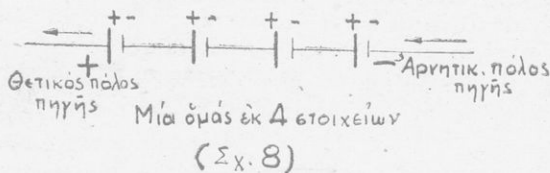 + - + - + - + -
+ -
Θετικός πόλος πηγῆς
Ἀρνητικ. πόλος πηγῆς
Μία ὁμάς ἐκ 4 στοιχείων
(Σχ. 8)